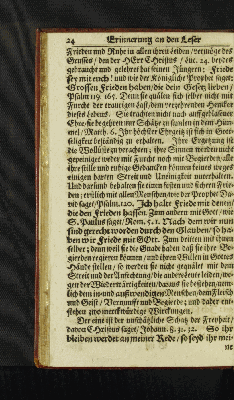 24 Erinnerung an den Leser
Frieden und Ruhe in allen ihren Leiden / vermöge des
Grusses / den der HErr Christus / Luc. 24. beides
gebraucht und gelehret hat seinen Jüngern: Friede
sey mit euch! und wie der Königliche Prophet saget:
Grossen Frieden haben / die dein Gesetz lieben /
Psalm 119. 165. Denn sie quälen sich selber nicht mit
Furcht der traurigen Last / dem verzehrenden Hencker
dieses Lebens. Sie trachten nicht nach auffgeblasener
Ehre / sie begehren nur Schätze zu samlen in dem Him-
mel / Matth. 6. Ihr höchster Ehrgeitz ist sich in Gott-
seligkeit beständig zu erhalten. Ihre Ergetzung ist
die Wollüste zu verachten; ihre Sinnen werden nicht
gepeiniget weder mit Furcht noch mit Begierden / alle
ihre stille und ruhige Gedancken können keines weges
einigen harten Streit und Uneinigkeit unterhalten.
Und darumb behalten sie einen süssen und sichern Frie-
den; erstlich mit allen Menschen / wie der Prophet Da-
vid saget / Psalm. 120. Ich halte Friede mit denen /
die den Frieden hassen. Zum andern mit Gott / wie
S. Paulus saget / Rom. 5. 1. Nach dem wir nun
sind gerecht worden durch den Glauben / so ha-
ben wir Friede mit GOtt. Zum dritten mit ihnen
selber; denn weil sie die Gnade haben daß sie ihre Be-
gierden regieren können / und ihren Willen in Gottes
Hände stellen / so werden sie nicht gequälet mit dem
Streit und der Anfechtung / die andere leute leiden / we-
gen der Widerwärtigkeiten / daraus sie bestehen / nem-
lich dem in- und auswendigen Menschen / dem Fleisch
und Geist / Vernunfft und Begierde; und daher ent-
stehen zwo merckwürdige Wirckungen.
Der eine ist der unschätzbare Schatz der Freyheit /
davon Christus saget / Johann. 8. 31. 32. So ihr
bleiben werdet an meiner Rede / so seyd ihr mei-
ne